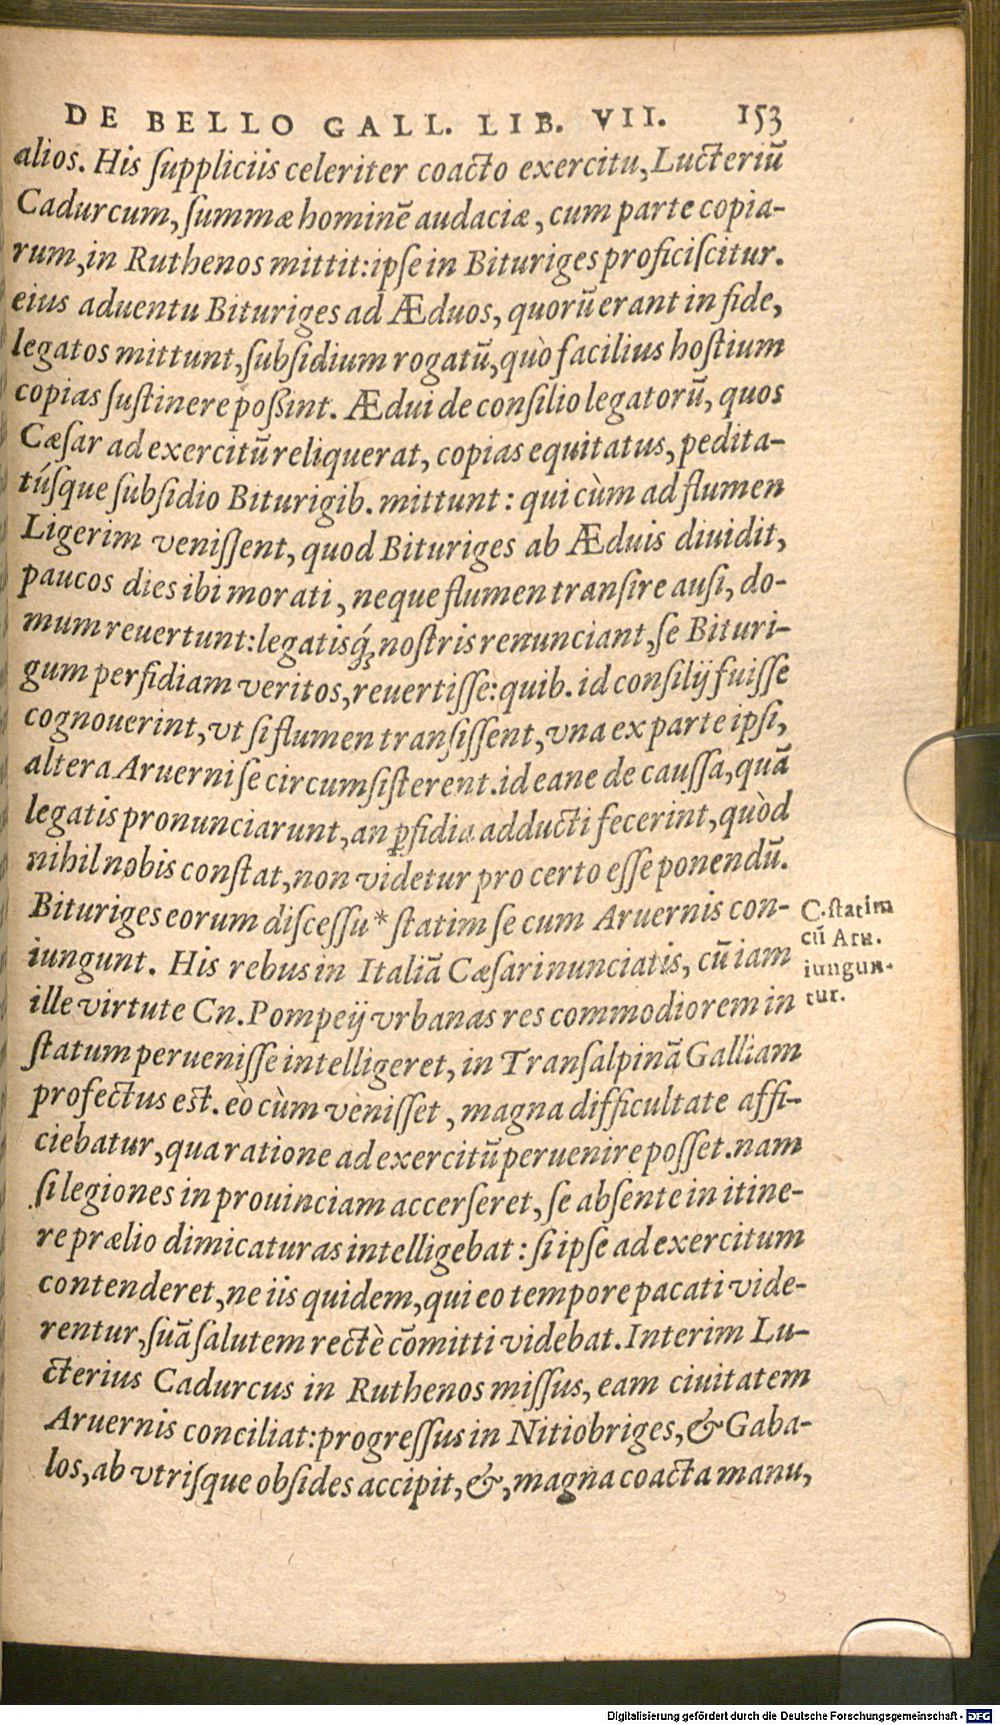 DE BELLO GALL. LIB. VII. 153
alios. His ſuppliciis celeriter coacto exercitu, Lucteriũ
Cadurcum, ſummæ hominẽ audaciæ, cum parte copia-
rum, in Ruthenos mittit: ipſe in Bituriges proficiſcitur.
eius aduentu Bituriges ad Æduos, quorũ erant in fide,
legatos mittunt, ſubſidium rogatũ, quò facilius hoſtium
copias ſuſtinere poſsint. Ædui de conſilio legatorũ, quos
Cæſar ad exercitũ reliquerat, copias equitatus, pedita-
túſque ſubſidio Biturigib. mittunt: qui cùm ad flumen
Ligerim veniſſent, quod Bituriges ab Æduis diuidit,
paucos dies ibi morati, neque flumen tranſire auſi, do-
mum reuertunt: legatisq́; noſtris renunciant, ſe Bituri-
gum perfidiam veritos, reuertiſſe: quib. id conſilij fuiſſe
cognouerint, vt ſi flumen tranſiſſent, vna ex parte ipſi,
altera Aruerni ſe circumſiſterent. id eane de cauſſa, quã
legatis pronunciarunt, an ꝑfidia adducti fecerint, quòd
nihil nobis conſtat, non videtur pro certo eſſe ponendũ.
Bituriges eorum diſceſſu* ſtatim ſe cum Aruernis con-
iungunt. His rebus in Italiã Cæſari nunciatis, cũ iam
ille virtute Cn. Pompeij vrbanas res commodiorem in
ſtatum perueniſſe intelligeret, in Tranſalpinã Galliam
profectus eſt. eò cùm veniſſet, magna difficultate affi-
ciebatur, qua ratione ad exercitũ peruenire poſſet. nam
ſi legiones in prouinciam accerſeret, ſe abſente in itine-
re prælio dimicaturas intelligebat: ſi ipſe ad exercitum
contenderet, ne iis quidem, qui eo tempore pacati vide-
rentur, ſuã ſalutem rectè cõmitti videbat. Interim Lu-
cterius Cadurcus in Ruthenos miſſus, eam ciuitatem
Aruernis conciliat: progreſſus in Nitiobriges, & Gaba-
los, ab vtriſque obſides accipit, &, magna coacta manu,
C. ſtatim
cũ Aru.
iungun-
tur.
Digitalisierung gefördert durch die Deutsche Forschungsgemeinschaft - DFG